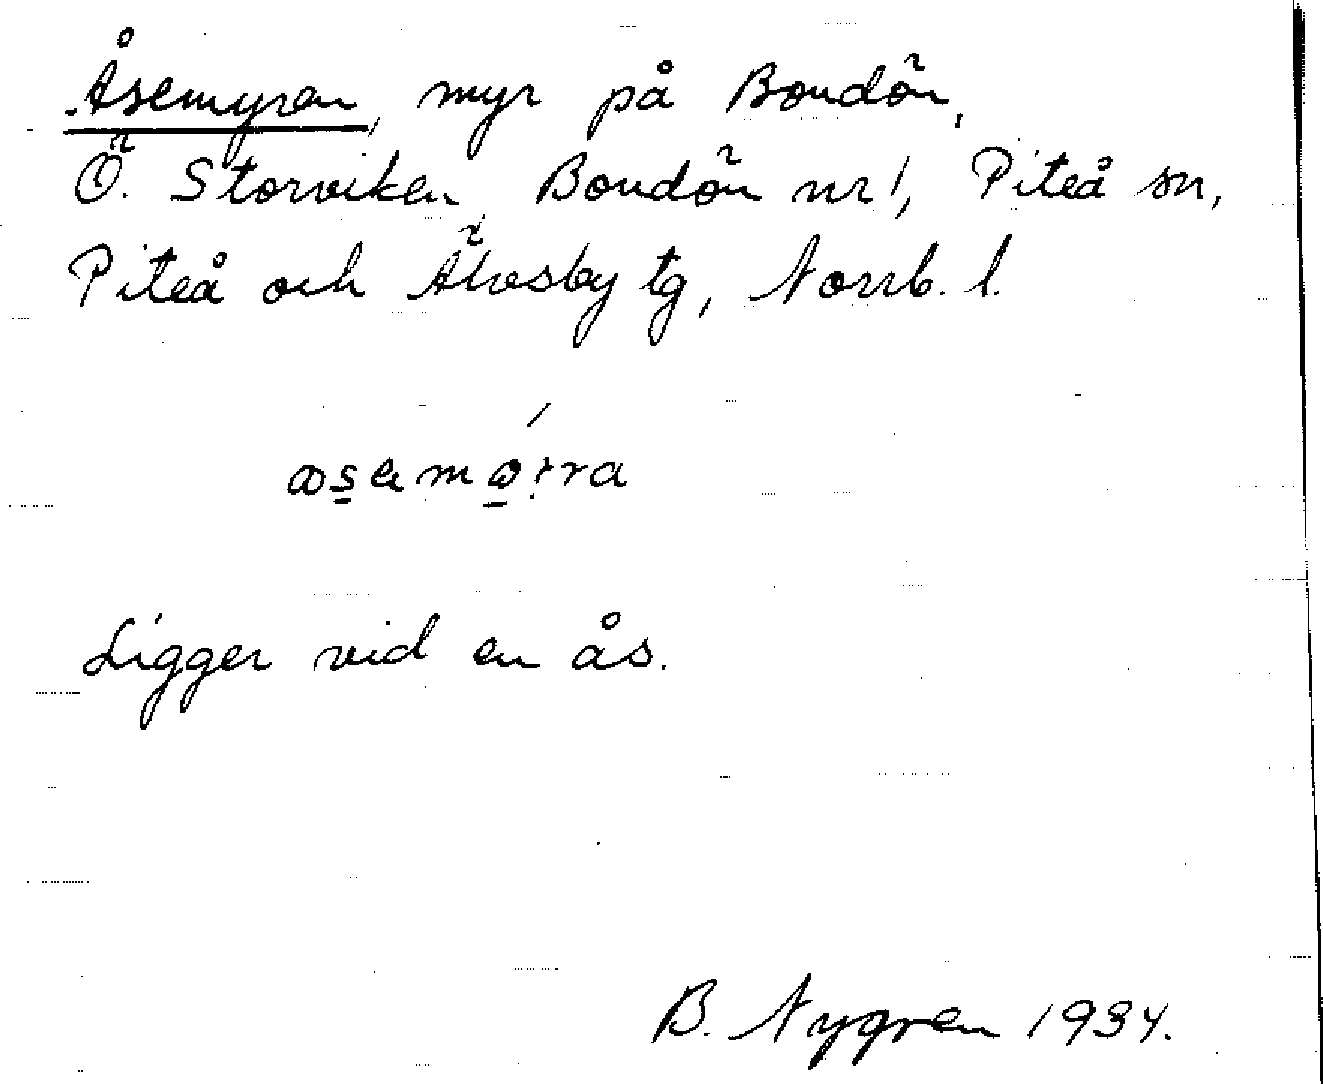 Åsemyren, myr på Bondön,
Ö. Storviken Bondön nr 1, Piteå sn,
Piteå och Älvsby tg, Norrb. l.
Ligger vid en ås.
B. Nygren 1934.